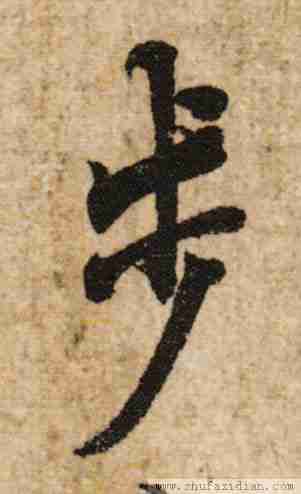 步
www.shufazidian.com